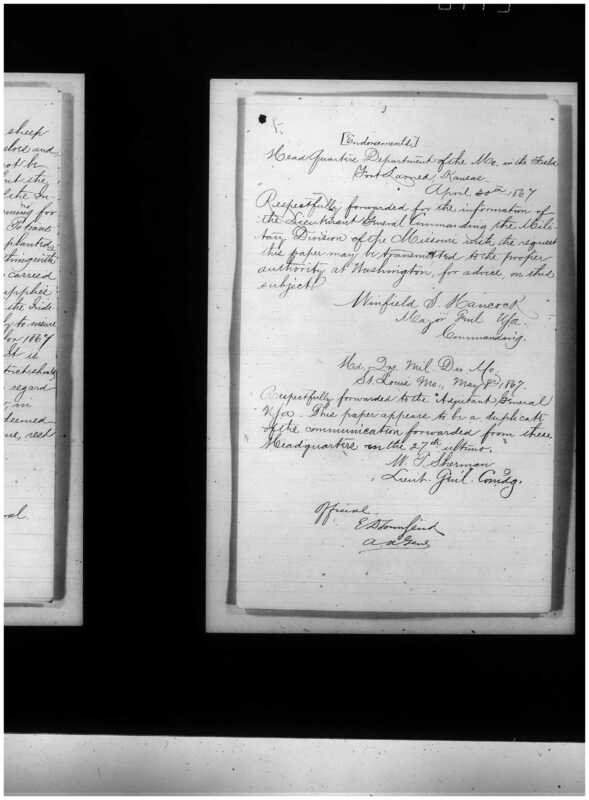 sheep
not be
the In-
planted
carried
the Inde
for 1867
It is
regard
in
deemed
[Endorsements.]
Head Quarters Department of the Mo. in the Field
Fort Larned, Kansas
April 20th 1867
Respectfully forwarded for the information of
the Lieutenant General Commanding the Mili-
tary Division of the Missouri with the request
this paper may be transmitted to the proper
authority at Washington, for advice, on this
subject.
Winfield S. Hancock
Major Genl USA.
Commanding.
Hd. Qrs. Mil. Div. Mo.
St. Louis Mo., May 8th, 1867.
Respectfully forwarded to the Adjutant General
USA. This paper appears to be a duplicate
of the communication forwarded from these
Headquarters on the 27th ultimo.
W. T. Sherman
Lieut. Genl. Comdg.
Official
E D Townsend
A. A. Genl